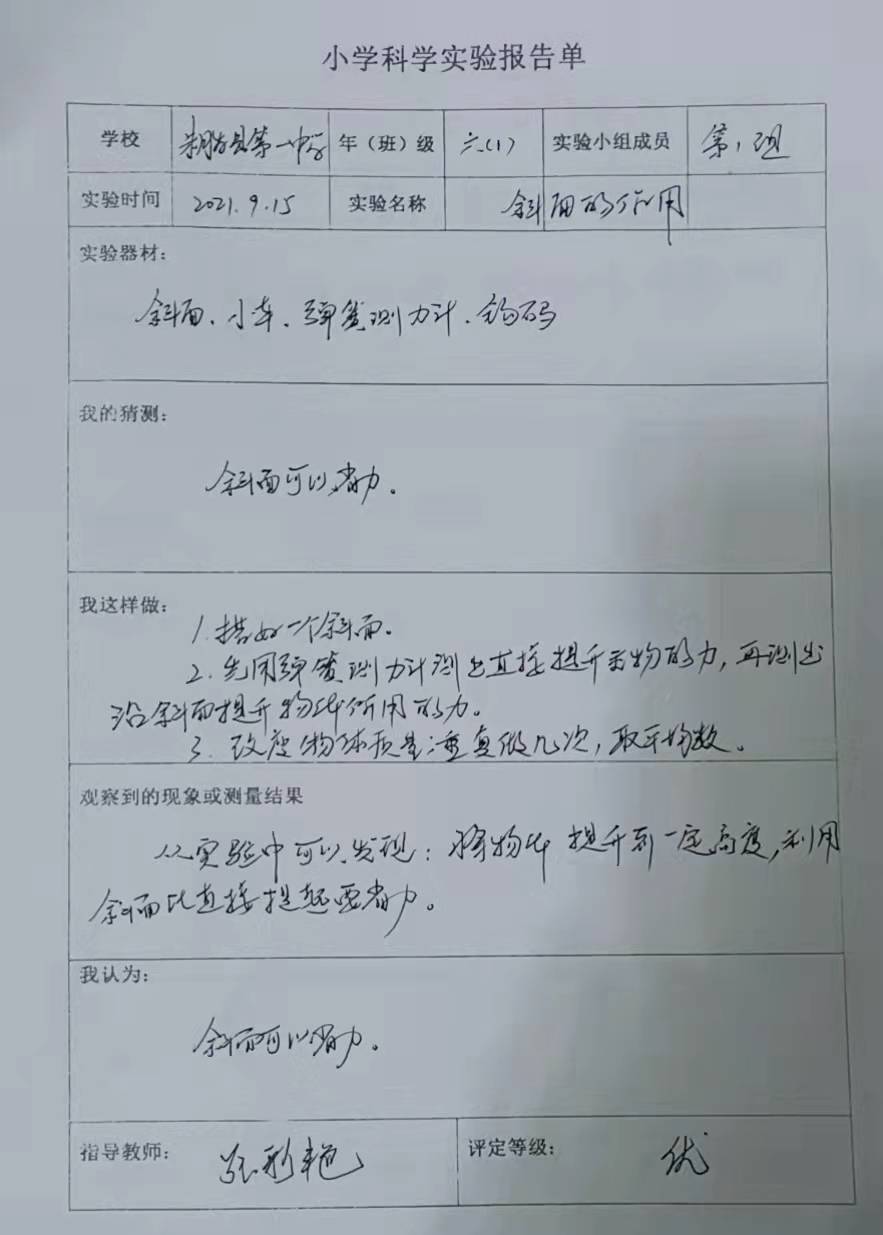 小学科学实验报告单
学校 县第一中学 年（班）级 六(1) 实验小组成员 第1组
实验时间 2021.9.15 实验名称 斜面的作用
实验器材：
斜面、小车、弹簧测力计、钩码
我的猜测：
斜面可以省力。
我这样做：
1.搭好一个斜面。
2.先用弹簧测力计测出直接提升重物的力，再测出
沿斜面提升物体所用的力。
3.改变物体质量重复做几次，取平均数。
观察到的现象或测量结果
从实验中可以发现：将物体提升到一定高度，利用
斜面比直接提起要省力。
我认为：
斜面可以省力。
指导教师： 张彩艳 评定等级： 优